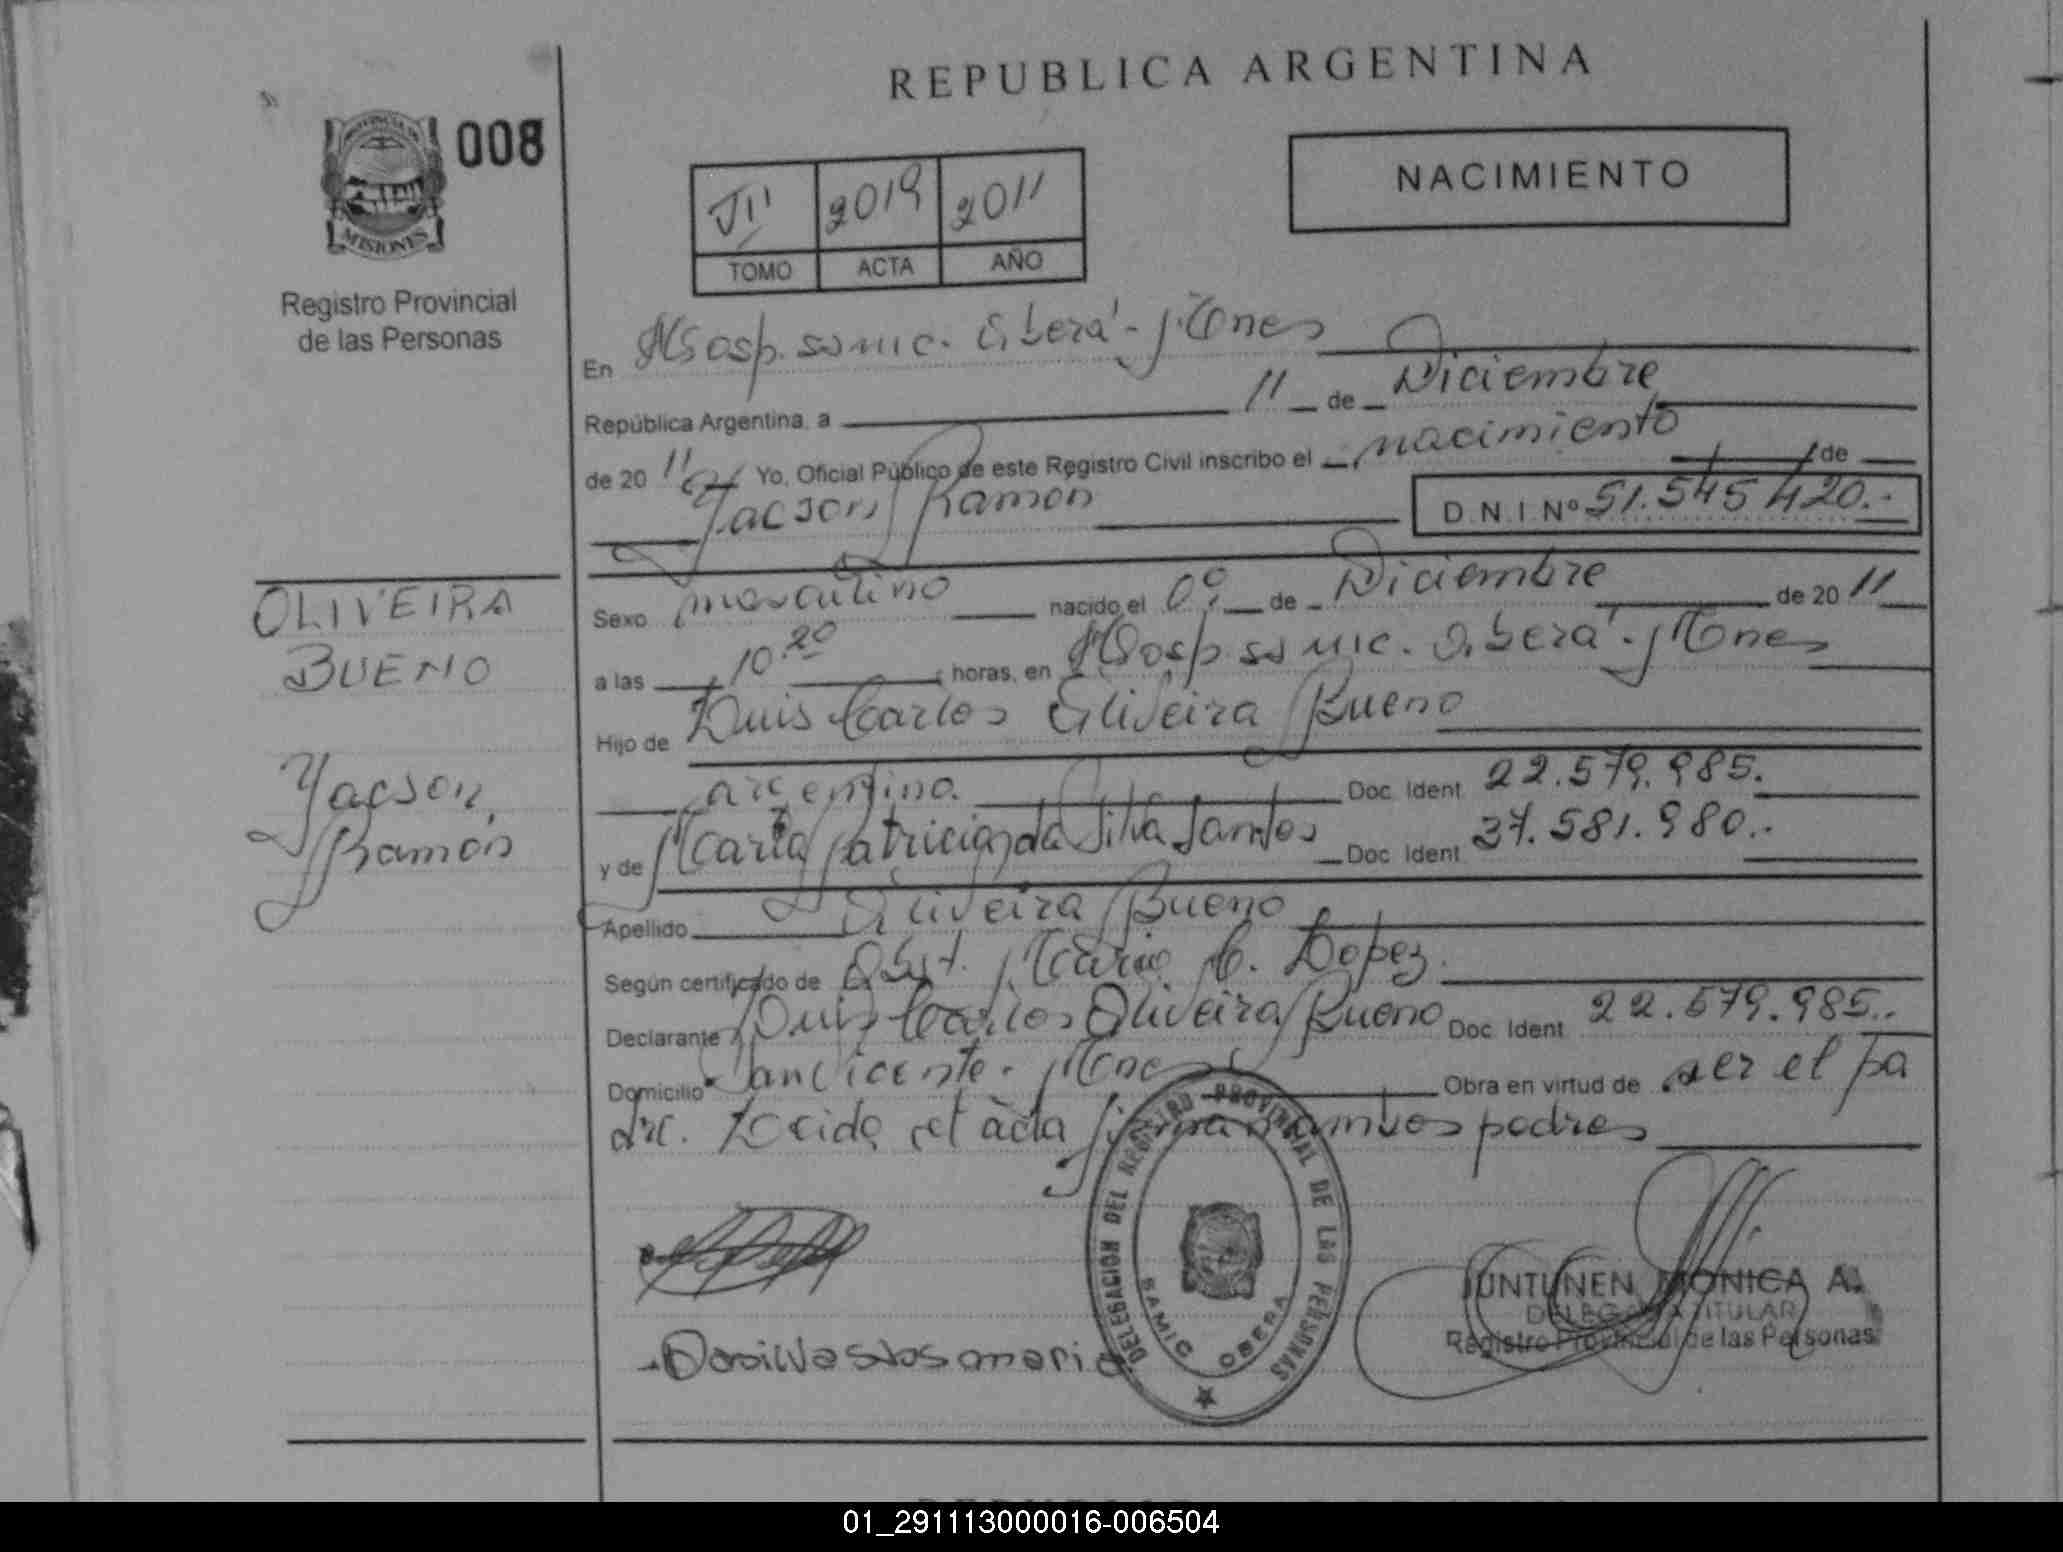 REPUBLICA ARGENTINA
PROVINCIA DE
MISIONES
008
Registro Provincial
de las Personas
VIII 2019 2011
TOMO ACTA AÑO
NACIMIENTO
En Hosp. samic. Oberá - Mnes
República Argentina, a 11 de Diciembre
de 20 11 Yo, Oficial Público de este Registro Civil inscribo el nacimiento de
Yacson Ramón
D.N.I. Nº 51.545.420.-
OLIVEIRA
BUENO
Yacson,
Ramón
Sexo masculino nacido el 09 de Diciembre de 20 11
a las 10.20 horas, en Hosp samic. Oberá - Mnes
Hijo de Luis Carlos Oliveira Bueno
argentino. Doc. Ident. 22.579.985.
y de Maria Patricia da Silva Santos Doc. Ident. 37.581.980.-
Apellido Oliveira Bueno
Según certificado de Obst. Maria C. Lopez.
Declarante Luis Carlos Oliveira Bueno Doc. Ident. 22.579.985.-
Domicilio San Vicente - Mnes Obra en virtud de ser el pa
dre. Leida el acta firman ambos padres
DELEGACION DEL REGISTRO PROVINCIAL DE LAS PERSONAS
SAMIC OBERA
JUNTUNEN MONICA A.
DELEGADA TITULAR
Registro Provincial de las Personas
01_291113000016-006504